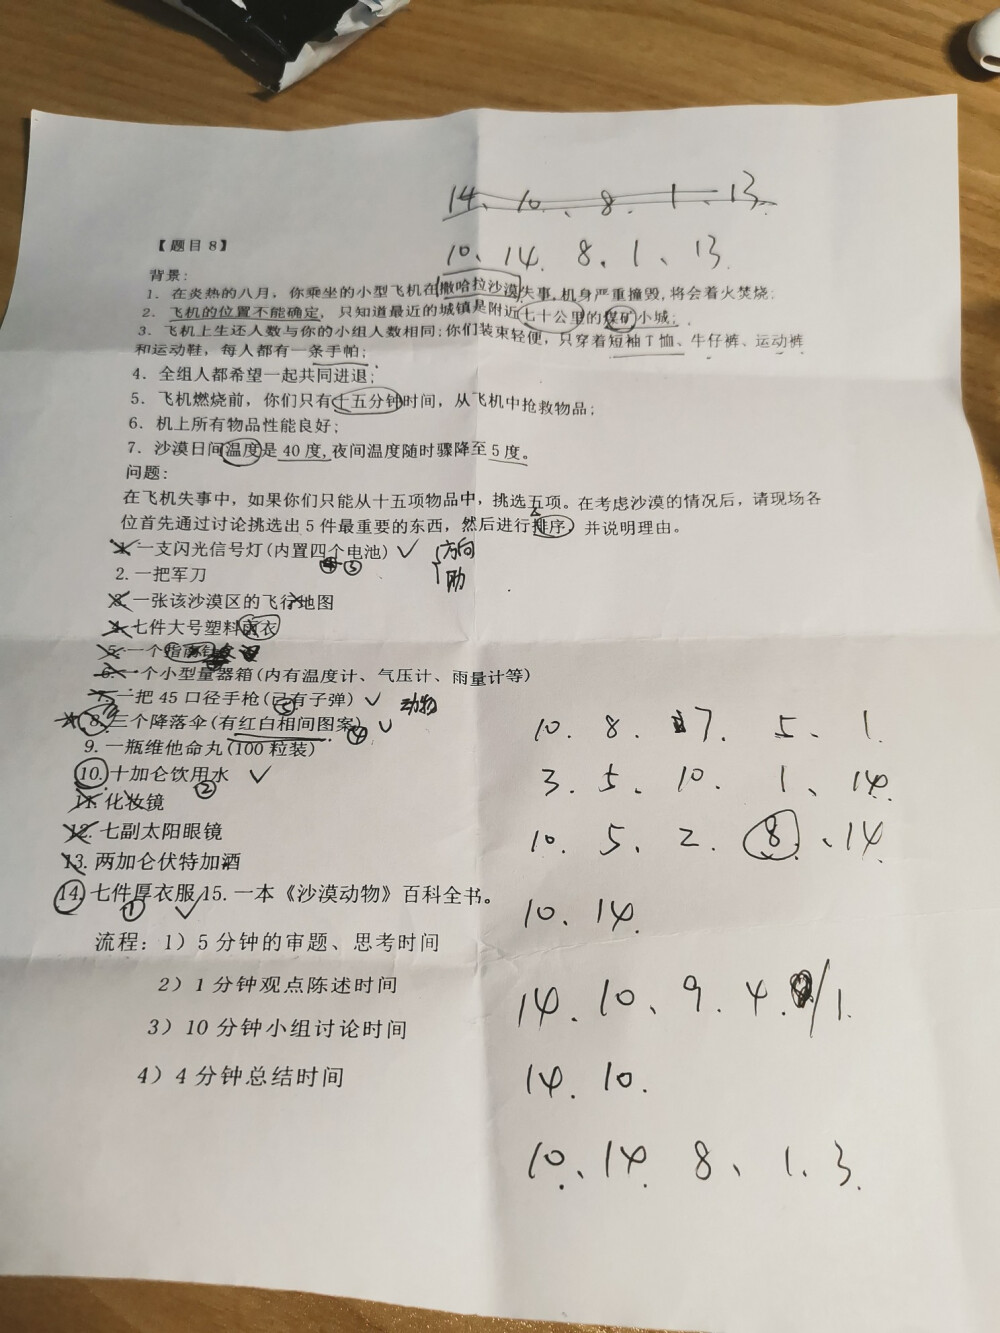 14、10、8、1、13.
10、14. 8、1、13.
【题目8】
背景:
1．在炎热的八月，你乘坐的小型飞机在撒哈拉沙漠失事,机身严重撞毁,将会着火焚烧;
2．飞机的位置不能确定，只知道最近的城镇是附近七十公里的煤矿小城;
3．飞机上生还人数与你的小组人数相同;你们装束轻便，只穿着短袖T恤、牛仔裤、运动裤
和运动鞋，每人都有一条手帕;
4．全组人都希望一起共同进退;
5．飞机燃烧前，你们只有十五分钟时间，从飞机中抢救物品;
6．机上所有物品性能良好;
7．沙漠日间温度是40度,夜间温度随时骤降至5度。
问题:
在飞机失事中，如果你们只能从十五项物品中，挑选五项。在考虑沙漠的情况后，请现场各
位首先通过讨论挑选出5件最重要的东西，然后进行排序，并说明理由。
一支闪光信号灯(内置四个电池) ✓ 方向
③
2.一把军刀
3.一张该沙漠区的飞行地图
4.七件大号塑料雨衣
5.一个指南针
6.一个小型量器箱(内有温度计、气压计、雨量计等)
7.一把45口径手枪(已有子弹) ✓ 动物
⑤
8.三个降落伞(有红白相间图案) ✓
④
9.一瓶维他命丸(100粒装)
10.十加仑饮用水 ✓
②
11.化妆镜
12.七副太阳眼镜
13.两加仑伏特加酒
14.七件厚衣服 15.一本《沙漠动物》百科全书。
① ✓
流程: 1) 5分钟的审题、思考时间
2) 1分钟观点陈述时间
3) 10分钟小组讨论时间
4) 4分钟总结时间
10. 8. 7. 5、1.
3. 5、10. 1、14.
10. 5、2. 8.、14.
10. 14.
14. 10、9. 4. /1.
14. 10.
10、14. 8、1. 3.